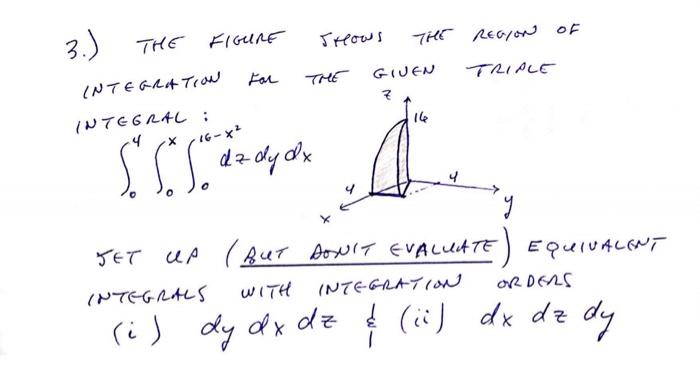 3.) THE FIGURE SHOWS THE REGION OF
INTEGRATION FOR THE GIVEN TRIPLE
INTEGRAL :
∫₀⁴ ∫₀ˣ ∫₀^{16-x²} dz dy dx
z
16
4
4
x
y
SET UP (BUT DON'T EVALUATE) EQUIVALENT
INTEGRALS WITH INTEGRATION ORDERS
(i) dy dx dz & (ii) dx dz dy